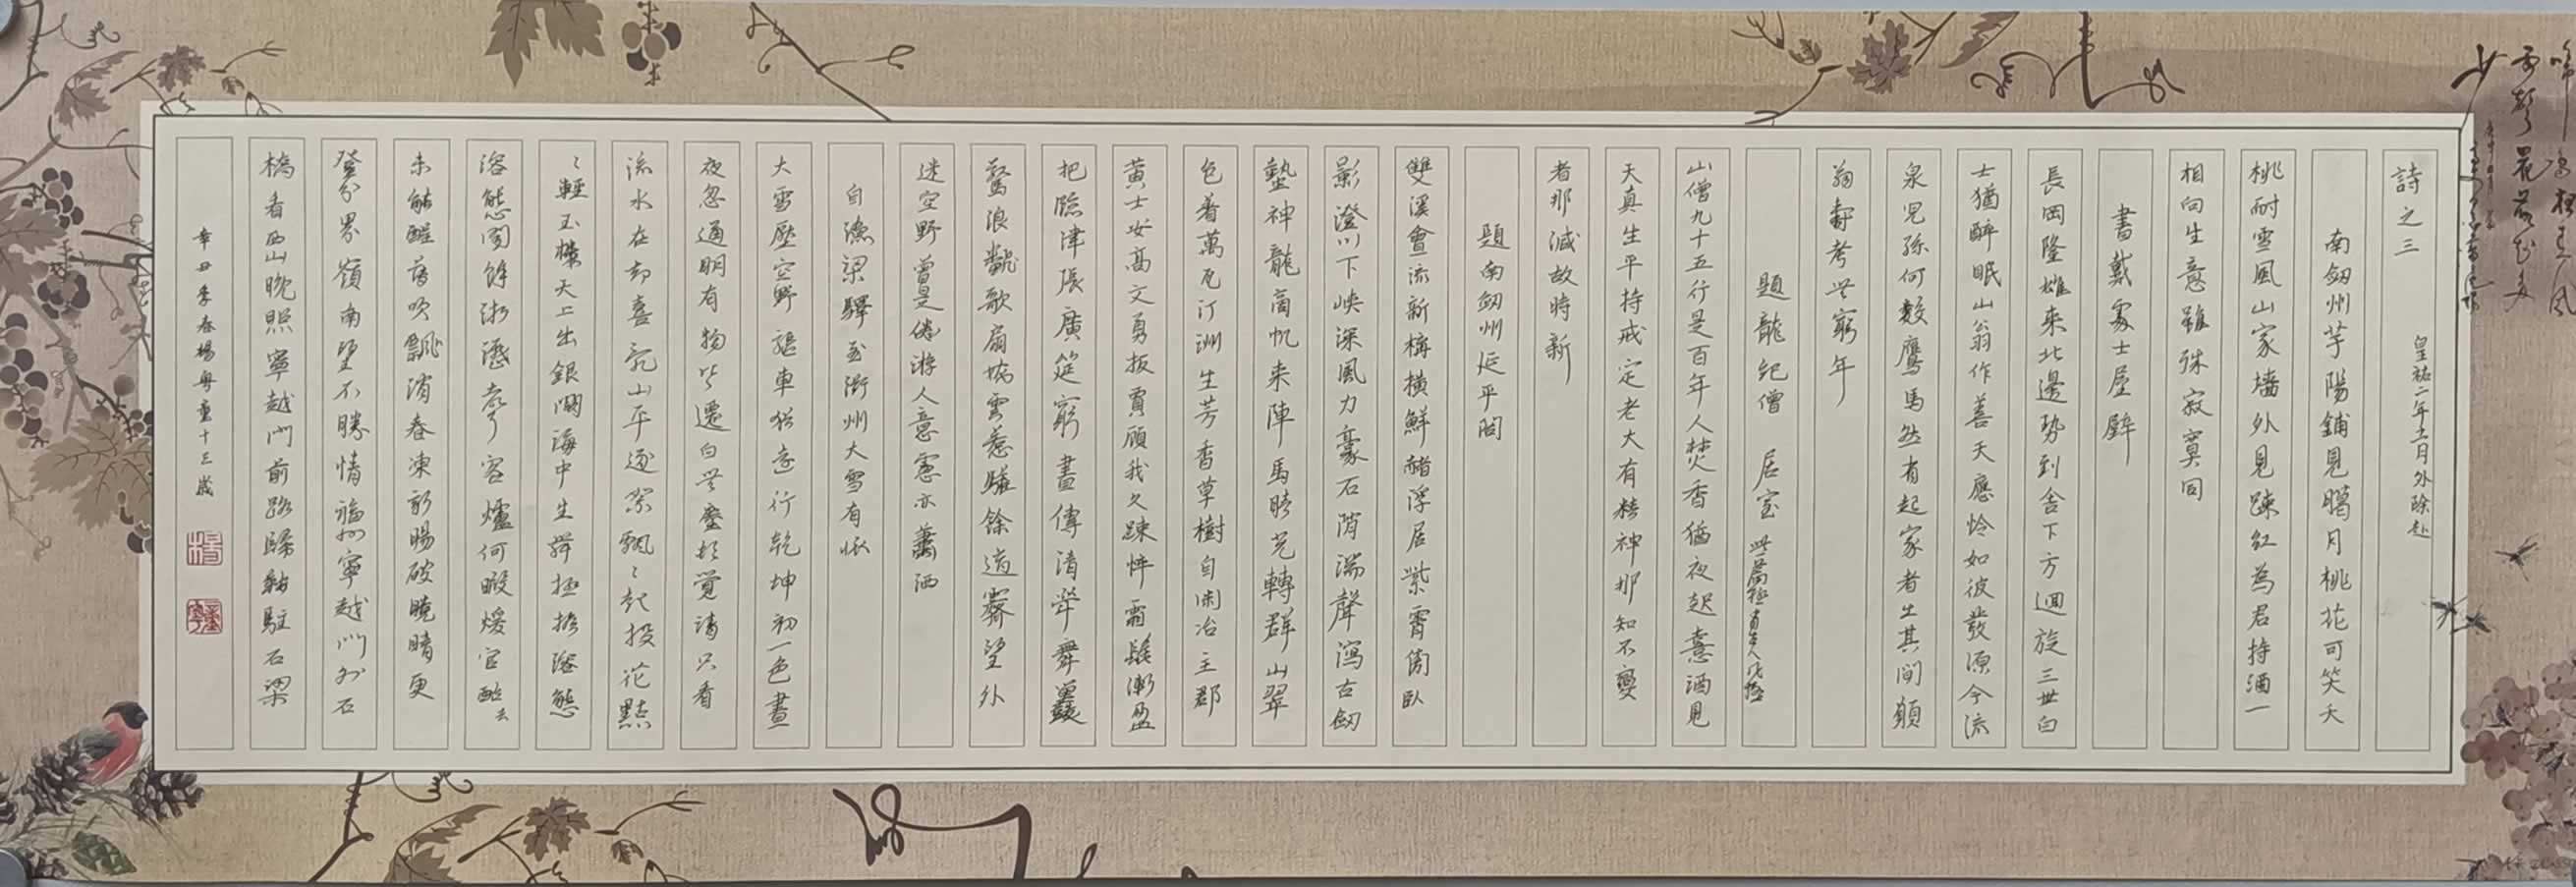 詩之三
皇祐二年十一月外除赴
南劒州芋陽鋪見臘月桃花可笑夭
桃耐雪風山家墻外見踈紅為君持酒一
相向生意雖殊寂寞同
書戴處士屋壁
長岡隆雄来北邊勢到舍下方迴旋三世白
士猶醉眠山翁作善天應怜如彼發源今流
泉兒孫何數鷹馬然有起家者生其間願
翁壽考世窮年
題龍紀僧 居室
山僧九十五行是百年人焚香猶夜起憙酒見
天真生平持戒定老大有精神那知不變
者那減故時新
題南劒州延平閣
雙溪會流新構横鮮赭浮居紫霄傍卧
影澄川下峽深風力豪石隋湍聲瀉古劒
蟄神龍商帆来陣馬晴光轉群山翠
色着萬瓦汀洲生芳香草樹自閑冶主郡
黄士安髙文勇扳賈顧我久踈悴霜髭漸盈
把臨津張廣筵窮晝傳清斚舞鬟
驚浪翻歌扇嬌雲惹驩餘適霽望外
迷空野曽是倦游人意慮亦蕭洒
自漁梁驛至衢州大雪有懷
大雪壓空野驅車猶遠行乾坤初一色晝
夜忽通明有物皆遷白世塵頓覺清只看
流水在却喜亂山平逐絮飄〻起投花點
〻輕玉樓天上出銀闕海中生舜極撩溶態
溶態閣餘淅瀝聲客爐何暇煖官酤去
未能醒薄吹飄消春凍新暘破曉晴更
登分界嶺南望不勝情福州寧越門外石
橋看西山晚照寧越門前路歸鞍駐石梁
辛丑季春楊粤童十三歲